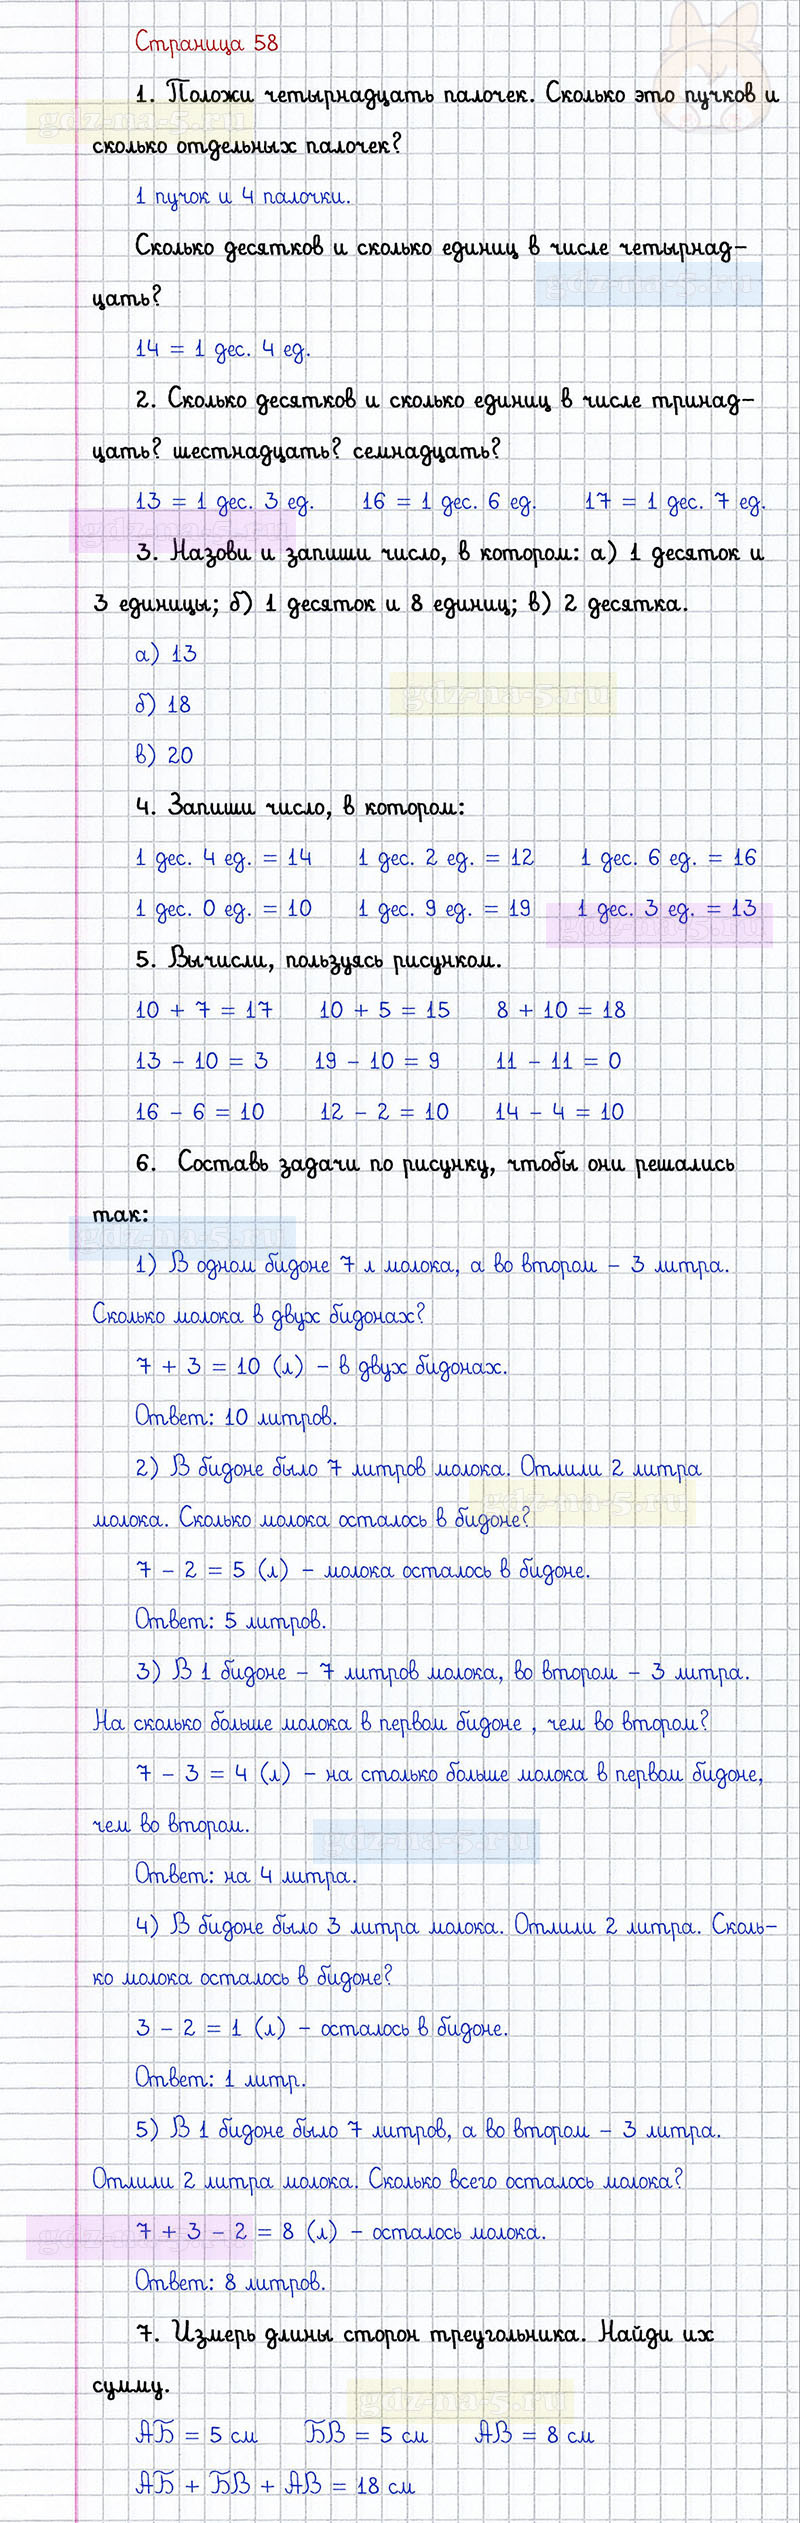 Страница 58
1. Положи четырнадцать палочек. Сколько это пучков и
gdz-na-5.ru
сколько отдельных палочек?
1 пучок и 4 палочки.
Сколько десятков и сколько единиц в числе четырнад-
gdz-na-5.ru
цать?
14 = 1 дес. 4 ед.
2. Сколько десятков и сколько единиц в числе тринад-
цать? шестнадцать? семнадцать?
13 = 1 дес. 3 ед. 16 = 1 дес. 6 ед. 17 = 1 дес. 7 ед.
gdz-na-5.ru
3. Назови и запиши число, в котором: а) 1 десяток и
3 единицы; б) 1 десяток и 8 единиц; в) 2 десятка.
а) 13
gdz-na-5.ru
б) 18
в) 20
4. Запиши число, в котором:
1 дес. 4 ед. = 14 1 дес. 2 ед. = 12 1 дес. 6 ед. = 16
1 дес. 0 ед. = 10 1 дес. 9 ед. = 19 1 дес. 3 ед. = 13
gdz-na-5.ru
5. Вычисли, пользуясь рисунком.
10 + 7 = 17 10 + 5 = 15 8 + 10 = 18
13 - 10 = 3 19 - 10 = 9 11 - 11 = 0
16 - 6 = 10 12 - 2 = 10 14 - 4 = 10
6. Составь задачи по рисунку, чтобы они решались
так:
gdz-na-5.ru
1) В одном бидоне 7 л молока, а во втором - 3 литра.
Сколько молока в двух бидонах?
7 + 3 = 10 (л) - в двух бидонах.
Ответ: 10 литров.
2) В бидоне было 7 литров молока. Отлили 2 литра
gdz-na-5.ru
молока. Сколько молока осталось в бидоне?
7 - 2 = 5 (л) - молока осталось в бидоне.
Ответ: 5 литров.
3) В 1 бидоне - 7 литров молока, во втором - 3 литра.
На сколько больше молока в первом бидоне , чем во втором?
7 - 3 = 4 (л) - на столько больше молока в первом бидоне,
чем во втором.
gdz-na-5.ru
Ответ: на 4 литра.
4) В бидоне было 3 литра молока. Отлили 2 литра. Сколь-
ко молока осталось в бидоне?
3 - 2 = 1 (л) - осталось в бидоне.
Ответ: 1 литр.
5) В 1 бидоне было 7 литров, а во втором - 3 литра.
Отлили 2 литра молока. Сколько всего осталось молока?
7 + 3 - 2 = 8 (л) - осталось молока.
gdz-na-5.ru
Ответ: 8 литров.
7. Измерь длины сторон треугольника. Найди их
сумму.
gdz-na-5.ru
АБ = 5 см БВ = 5 см АВ = 8 см
АБ + БВ + АВ = 18 см